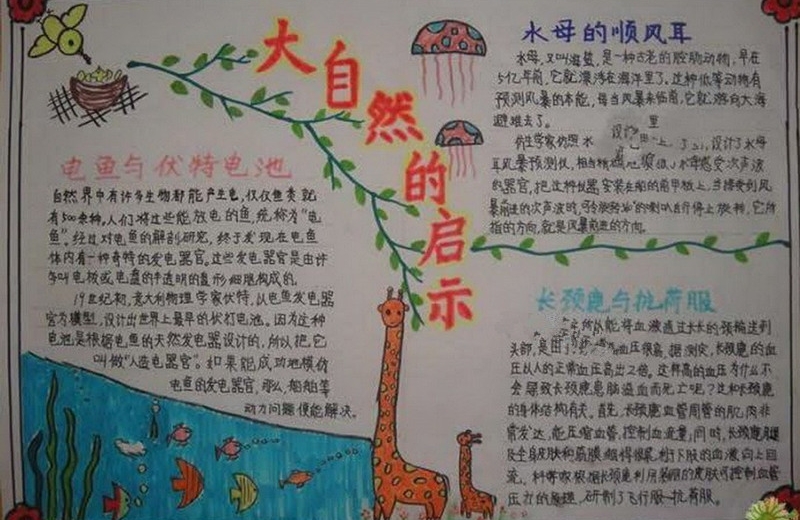 大自然的启示
电鱼与伏特电池
自然界中有许多生物都能产生电,仅仅鱼类就
有500余种。人们将这些能放电的鱼,统称为"电
鱼"。经过对电鱼的解剖研究,终于发现在电鱼
体内有一种奇特的发电器官。这些发电器官是由许
多叫电板或电盘的半透明的盘形细胞构成的。
19世纪初,意大利物理学家伏特,从电鱼发电器
官为模型,设计出世界上最早的伏打电池。因为这种
电池是根据电鱼的天然发电器设计的,所以把它
叫做"人造电器官"。如果能成功地模仿
电鱼的发电器官,那么,船舶等
动力问题便能解决。
水母的顺风耳
水母,又叫海蜇,是一种古老的腔肠动物,早在
5亿年前,它就漂浮在海洋里了。这种低等动物有
预测风暴的本能,每当风暴来临前,它就游向大海
避难去了。
仿生学家仿照水 设计了水母
耳风暴预测仪,相当精 水母感受次声波
的器官,把这种仪器安装在船的前甲板上,当接受到风
暴 的次声波时, 的喇叭自行停上旋转,它所
指的方向,就是风暴前进的方向。
长颈鹿与抗荷服
能将血液通过长长的颈输送到
头部,是由 血压很高。据测定,长颈鹿的血
压从人的正常血压高出2倍。这样高的血压为什么不
会导致长颈鹿患脑溢血而死亡呢?这和长颈鹿
的身体结构有关。首先,长颈鹿血管周管的肌肉非
常发达,能压缩血管,控制血流量;同时,长颈鹿腿
及全身皮肤和筋膜绷得很紧,利于下肢的血液向上回
流。科学家根据长颈鹿利用 皮肤可控制血管
压力的原理,研制了飞行服—抗荷服。